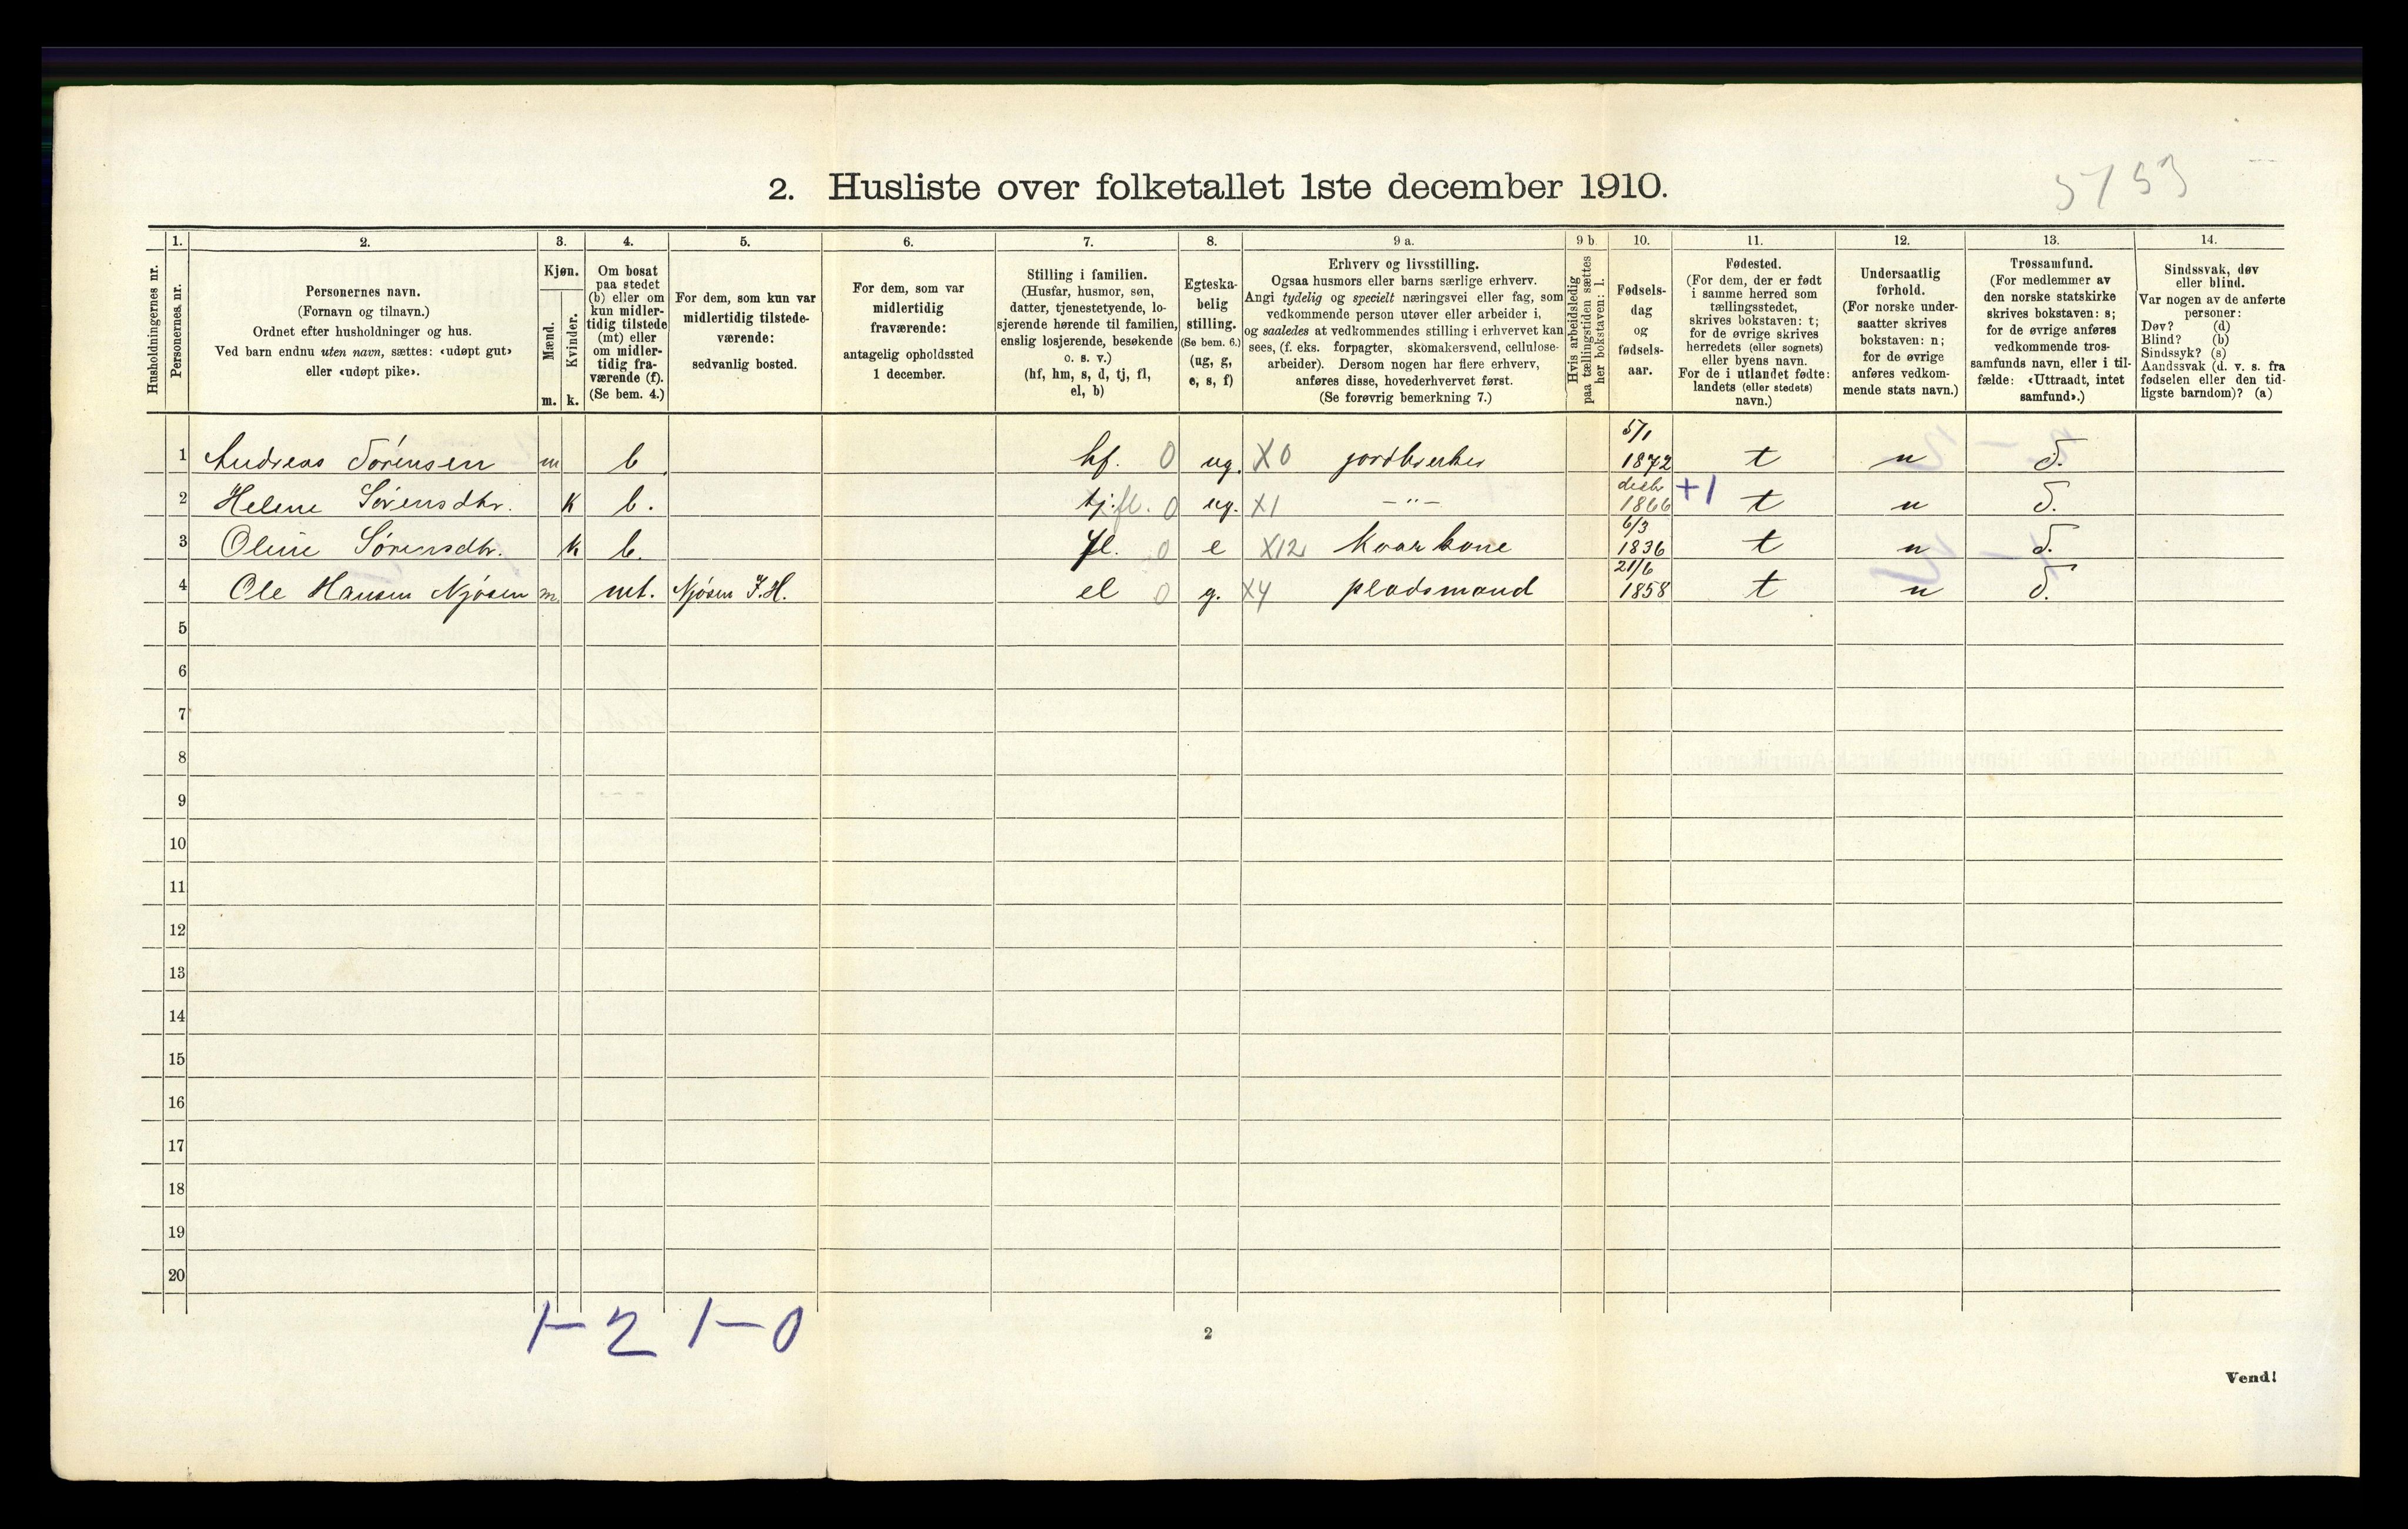 5/53
2. Husliste over folketallet 1ste december 1910.
Husholdningernes nr.
1.
Personernes nr.
2.
Personernes navn.
(Fornavn og tilnavn.)
Ordnet efter husholdninger og hus.
Ved barn endnu uten navn, sættes: «udøpt gut»
eller «udøpt pike».
3.
Kjøn.
Mænd.
Kvinder.
m. k.
4.
Om bosat
paa stedet
(b) eller om
kun midler-
tidig tilstede
(mt) eller
om midler-
tidig fra-
værende (f).
(Se bem. 4.)
5.
For dem, som kun var
midlertidig tilstede-
værende:
sedvanlig bosted.
6.
For dem, som var
midlertidig
fraværende:
antagelig opholdssted
1 december.
7.
Stilling i familien.
(Husfar, husmor, søn,
datter, tjenestetyende, lo-
sjerende hørende til familien,
enslig losjerende, besøkende
o. s. v.)
(hf, hm, s, d, tj, fl,
el, b)
8.
Egteska-
belig
stilling.
(Se bem. 6.)
(ug, g,
e, s, f)
9 a.
Erhverv og livsstilling.
Ogsaa husmors eller barns særlige erhverv.
Angi tydelig og specielt næringsvei eller fag, som
vedkommende person utøver eller arbeider i,
og saaledes at vedkommendes stilling i erhvervet kan
sees, (f. eks. forpagter, skomakersvend, cellulose-
arbeider). Dersom nogen har flere erhverv,
anføres disse, hovederhvervet først.
(Se forøvrig bemerkning 7.)
9 b.
Hvis arbeidsledig
paa tællingstiden sættes
her bokstaven: l.
10.
Fødsels-
dag
og
fødsels-
aar.
11.
Fødested.
(For dem, der er født
i samme herred som
tællingsstedet,
skrives bokstaven: t;
for de øvrige skrives
herredets (eller sognets)
eller byens navn.
For de i utlandet fødte:
landets (eller stedets)
navn.)
12.
Undersaatlig
forhold.
(For norske under-
saatter skrives
bokstaven: n;
for de øvrige
anføres vedkom-
mende stats navn.)
13.
Trossamfund.
(For medlemmer av
den norske statskirke
skrives bokstaven: s;
for de øvrige anføres
vedkommende tros-
samfunds navn, eller i til-
fælde: «Uttraadt, intet
samfund».)
14.
Sindssvak, døv
eller blind.
Var nogen av de anførte
personer:
Døv? (d)
Blind? (b)
Sindssyk? (s)
Aandssvak (d. v. s. fra
fødselen eller den tid-
ligste barndom)? (a)
1 Andreas Sørensen m b hf. 0 ug. X0 jordbruker 5/1 1872 t n s.
2 Helene Sørensdtr. k b. tj. fl. 0 ug. X1 —"— desbr 1866 +1 t n s.
3 Oline Sørensdtr. k b. fl. 0 e X12 Kaarkone 6/3 1836 t n s.
4 Ole Hansen Njøsen m. mt. Njøsen I.H. el 0 g. X4 pladsmand 21/6 1858 t n s.
5
6
7
8
9
10
11
12
13
14
15
16
17
18
19
20
1–2 1–0
2
Vend!